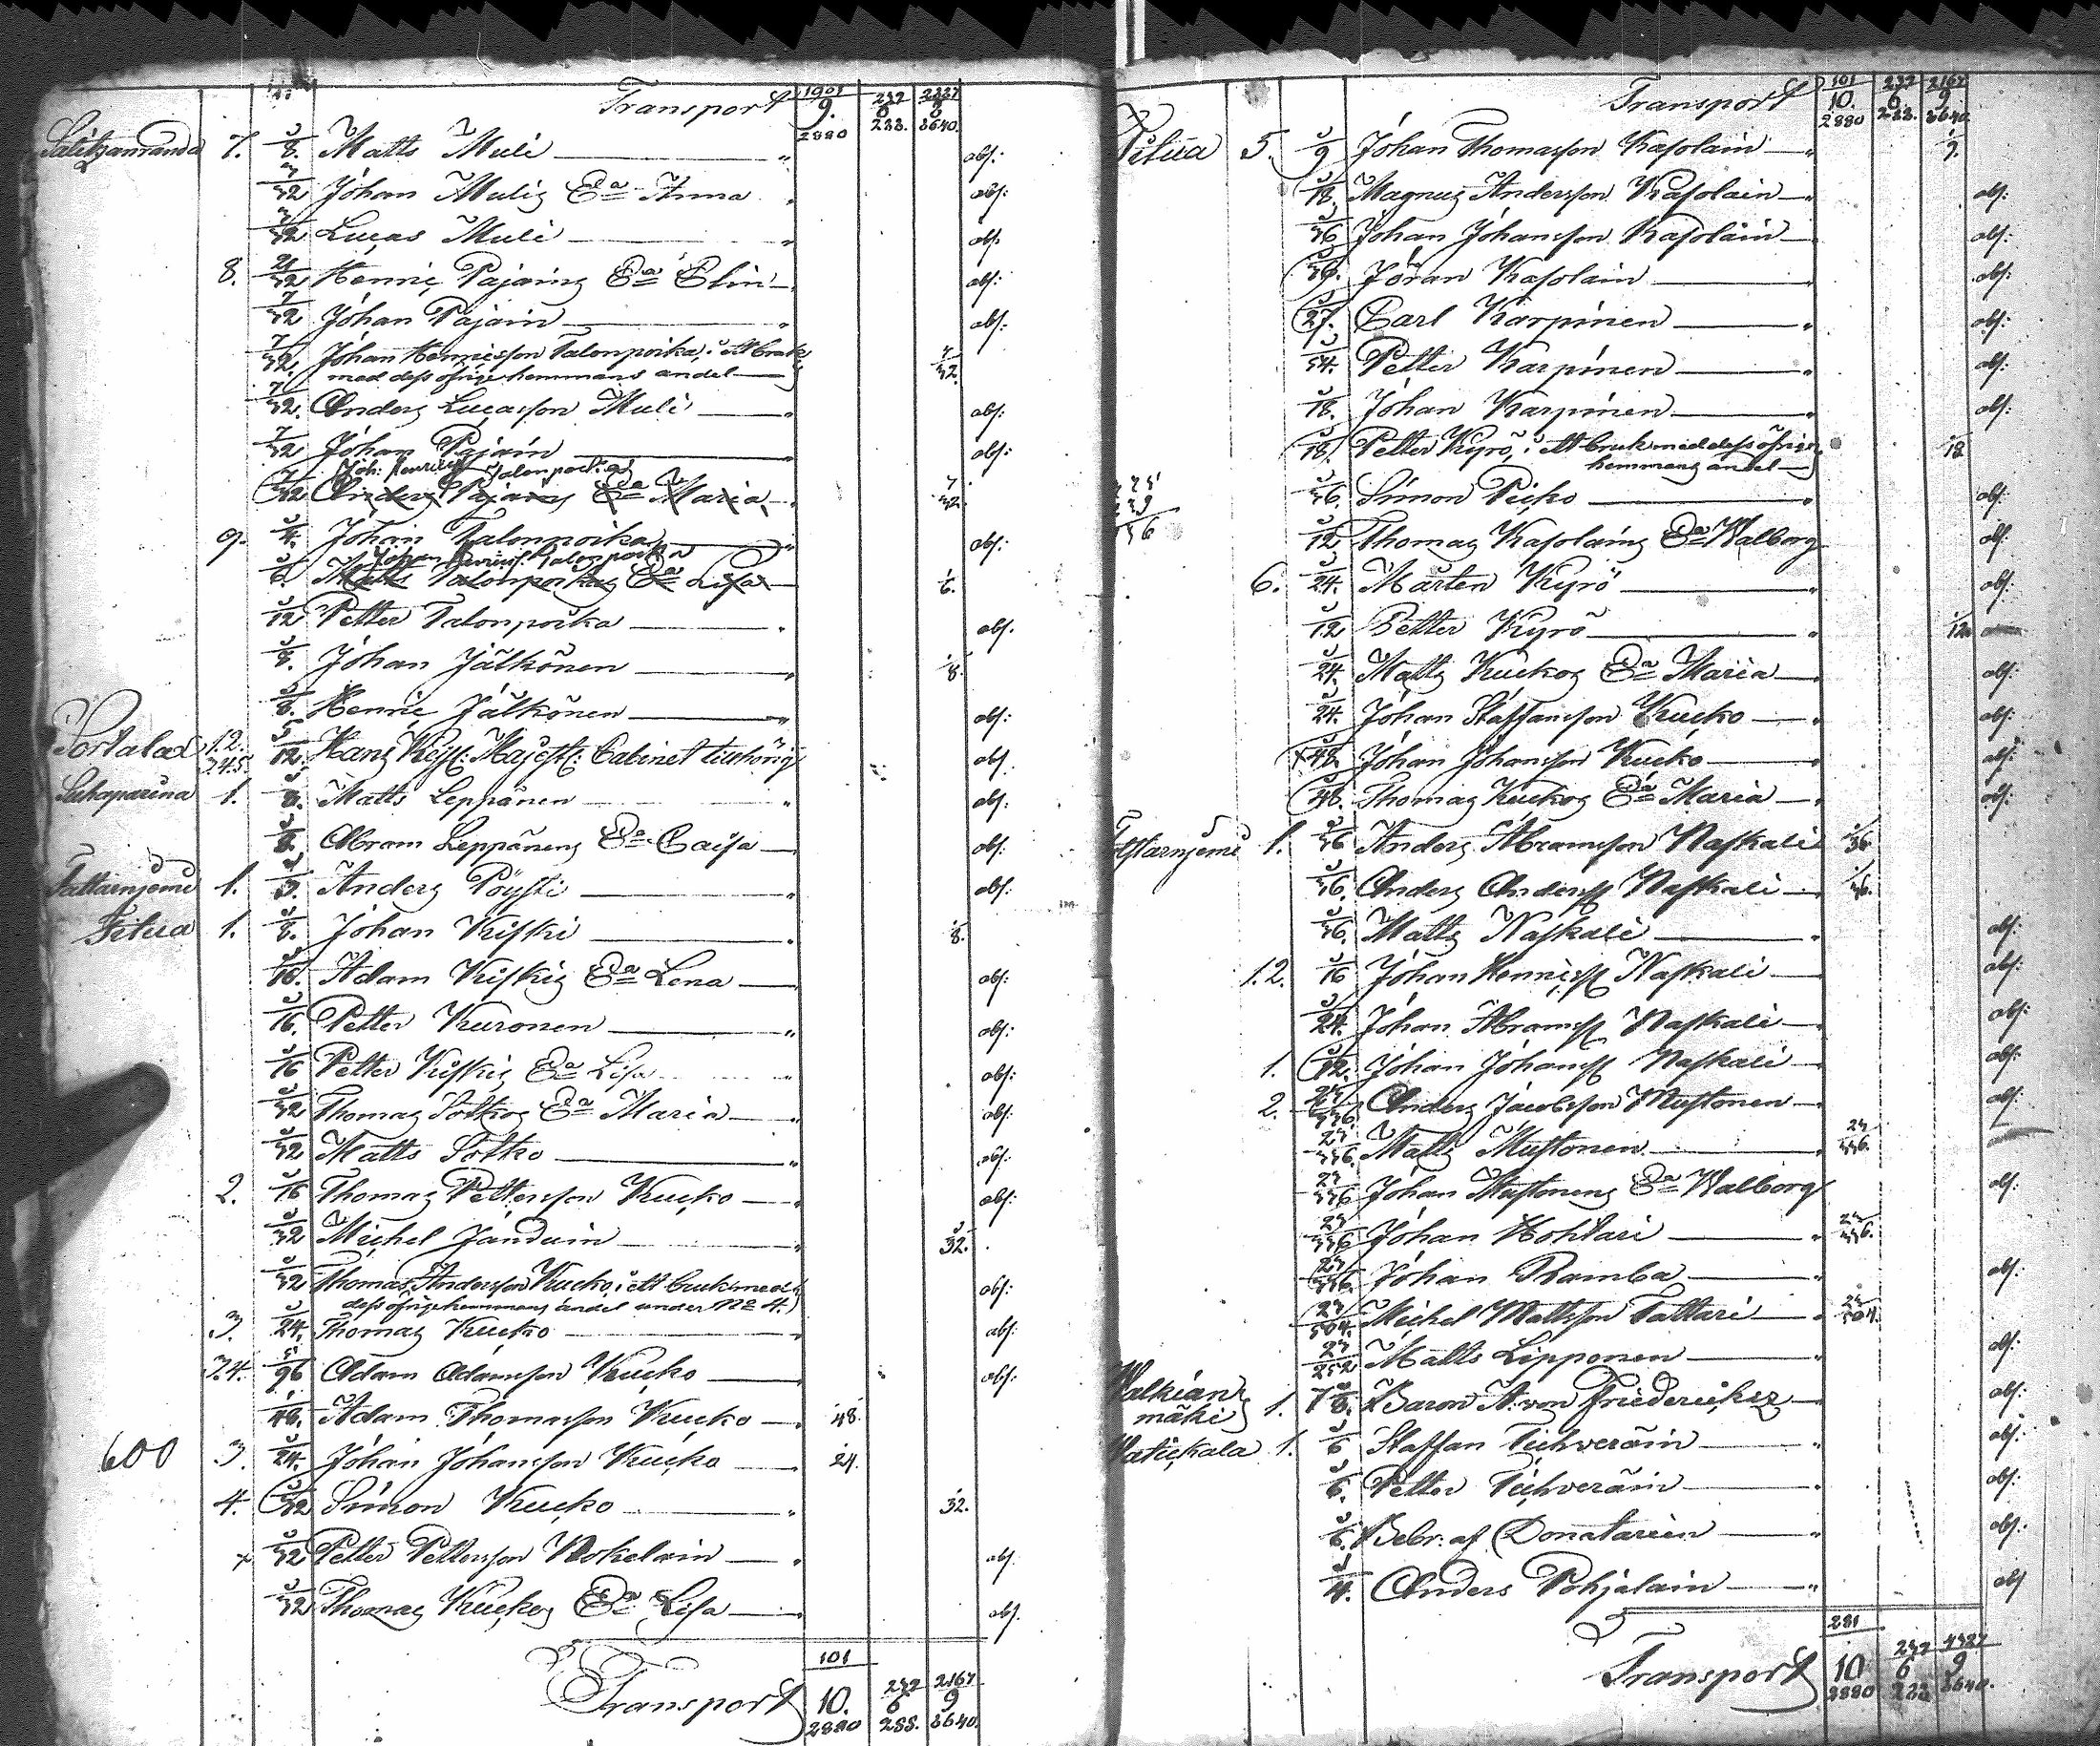 Transport 9. 6 8
2880 288. 8640.
7. 1/8. Matts Muli " abs:
7/32 Johan Mulis Ea Anna abs:
7/32 Lucas Muli " abs.
8. 21/32 Henric Pajains Ea Elin abs:
7/32 Johan Pajain " abs:
7/32. Johan Henricsson Talonpoika, i ett bruk 7/32.
med dess öfrige hemmans andel
7/32. Anders Lucasson Muli " abs:
7/32 Johan Pajain abs:
Joh: Henrics Talonpoikas
7/32 Anders Pajains Ea Maria 7/32.
9. 1/4. Johan Talonpoika abs:
Johan Henrics Talonpoika
1/6. Matts Talonpoikas Ea Lisa 1/6.
1/12 Petter Talonpoika abs.
1/8. Johan Jälkönen 1/8.
1/8. Henric Jälkönen abs:
Portalax 1.2. 5/12. Hans Kejs: Majest: Cabinet tillhörig abs.
3.4.5.
Suhaparina 1. 1/8. Matts Leppänen " abs:
1/8. Abram Leppänens Ea Caisa abs:
Tattarnjemi 1. Anders Pöysti " abs:
Tiitua 1. 1/8. Johan Kiski 1/8.
1/16. Adam Kiskis Ea Lena abs:
1/16. Petter Kuronen " abs:
1/16 Petter Kiskis Ea Lisa " abs:
1/32 Thomas Sotkos Ea Maria abs:
1/32 Matts Sotko " abs:
2. 1/16 Thomas Pettersson Kucko abs:
1/32 Michel Janduin 1/32.
1/32 Thomas Andersson Kucko, i ett bruk med abs:
dess öfrige hemmans andel under No 4.
3. 1/24. Thomas Kucko abs:
3.4. 5/96 Adam Adamsson Kucko abs:
1/48. Adam Thomasson Kucko 1/48.
600 3. 1/24. Johan Johansson Kucko 1/24.
4. 1/32 Simon Kucko " 1/32.
1/32 Petter Pettersson Nokelain abs.
1/32 Thomas Kuckos Ea Lisa abs.
101 232 2167
Transport 10. 6 9
2880 288. 8640.
101 232 2167
Transport 10. 6 9
2880 288. 8640.
Tiitua 5. 1/9 Johan Thomasson Kasolain 1/9.
1/18. Magnus Andersson Kasolain abs:
1/36 Johan Johansson Kasolain abs:
1/36. Jöran Kasolain abs:
1/27. Carl Karpinen " abs:
1/54. Petter Karpinen " abs:
1/18. Johan Karpinen " abs:
1/18. Petter Kyrö, i ett bruk med dess öfrige 1/18
hemmans andel
1/36. Simon Picko abs:
1/12 Thomas Kasolains Ea Walborg abs.
6. 1/24. Mårten Kyrö " abs:
1/12 Petter Kyrö " 1/12.
1/24. Matts Kuckos Ea Maria abs:
1/24. Johan Staffansson Kucko abs:
1/48. Johan Johansson Kucko abs:
1/48. Thomas Kuckos Ea Maria abs:
1. 1/36 Anders Abramsson Naskali 1/36
1/36. Anders Anderss Naskali 1/36.
1/36. Matts Naskali abs:
1.2. 1/16 Johan Henricss Naskali abs:
1/24. Johan Abramss Naskali abs:
1. 1/12. Johan Johanss Naskali abs:
2. 23/336. Anders Jacobsson Mustonen abs:
23/336. Matts Mustonen 23/336.
23/336 Johan Mustonens Ea Walborg abs.
23/336 Johan Kohtari " 23/336.
23/336. Johan Ramba " abs.
23/504. Michel Mattsson Tattari 23/504.
23/252 Matts Lipponen " abs.
Walkian
mäki 1. 7/8. Baron A. von Friedericksz abs:
Watickala 1. 1/6 Staffan Tichveräin abs:
1/6. Petter Tichveräin abs:
1/6. Bebr: af Donatarien " abs.
1/4. Anders Pohjalain " abs
281
Transport 10 6 9
2880 288 8640.